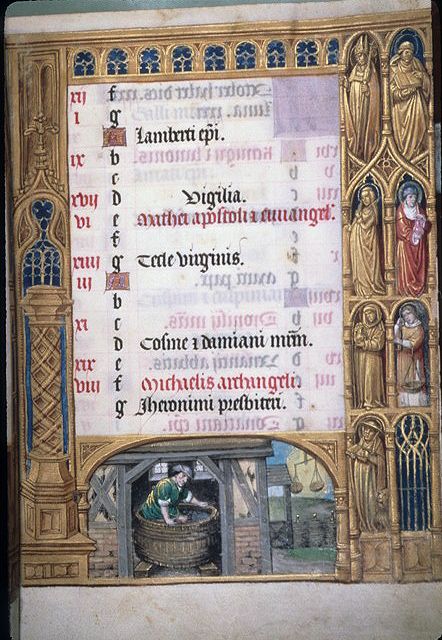 xij f
i g
A Lamberti epi.
ix b
c
xvij d Vigilia.
vi e Mathei apostoli ⁊ euuangel'.
f
xiiij g Tecle virginis.
iij A
b
xi c
d Cosme ⁊ damiani mrm̄.
xix e
viij f Michaelis archangeli.
g Jheronimi presbiteri.